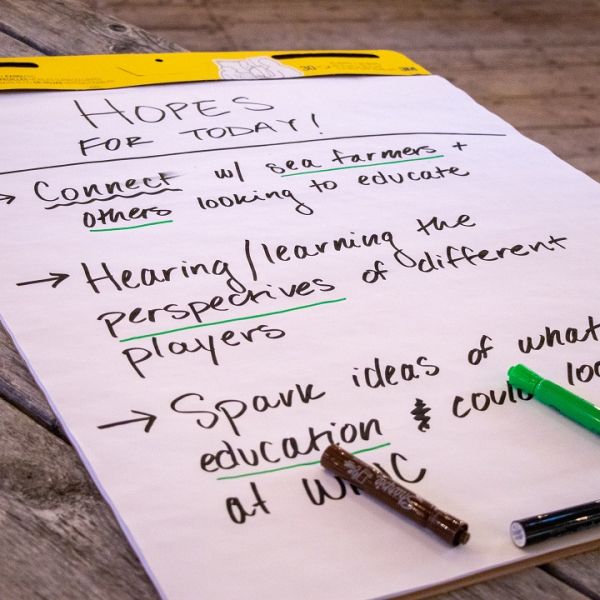 HOPES
FOR TODAY!
→ Connect w/ sea farmers +
others looking to educate
→ Hearing/learning the
perspectives of different
players
→ Spark ideas of what
education could
at